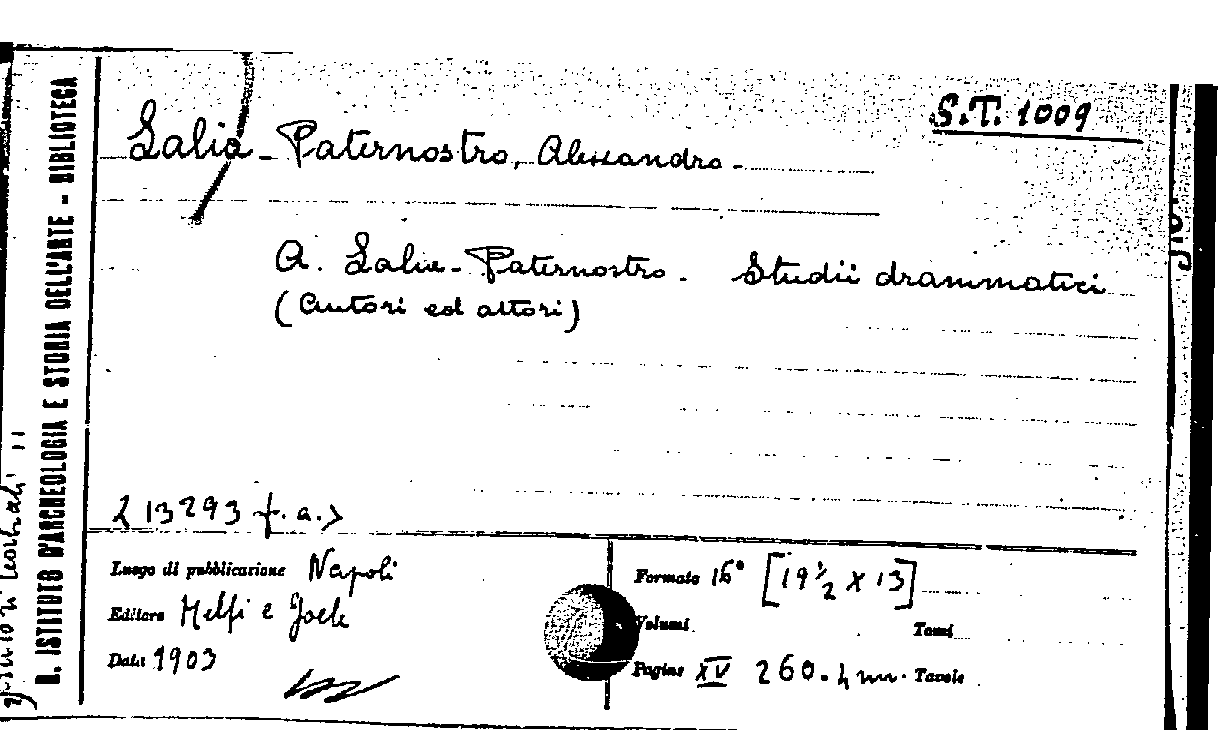 S.T. 1009
Salia-Paternostro, Alessandro-
A. Salia-Paternostro. Studii drammatici
(Autori ed attori)
213293 f. a.
Luogo di pubblicazione Napoli
Editore Melfi e Joele
Data 1903
Formato 16° [19½ x 13]
Volumi
Tomi
Pagine XV 260.
Tavole
R. ISTITUTO D'ARCHEOLOGIA E STORIA DELL'ARTE - BIBLIOTECA